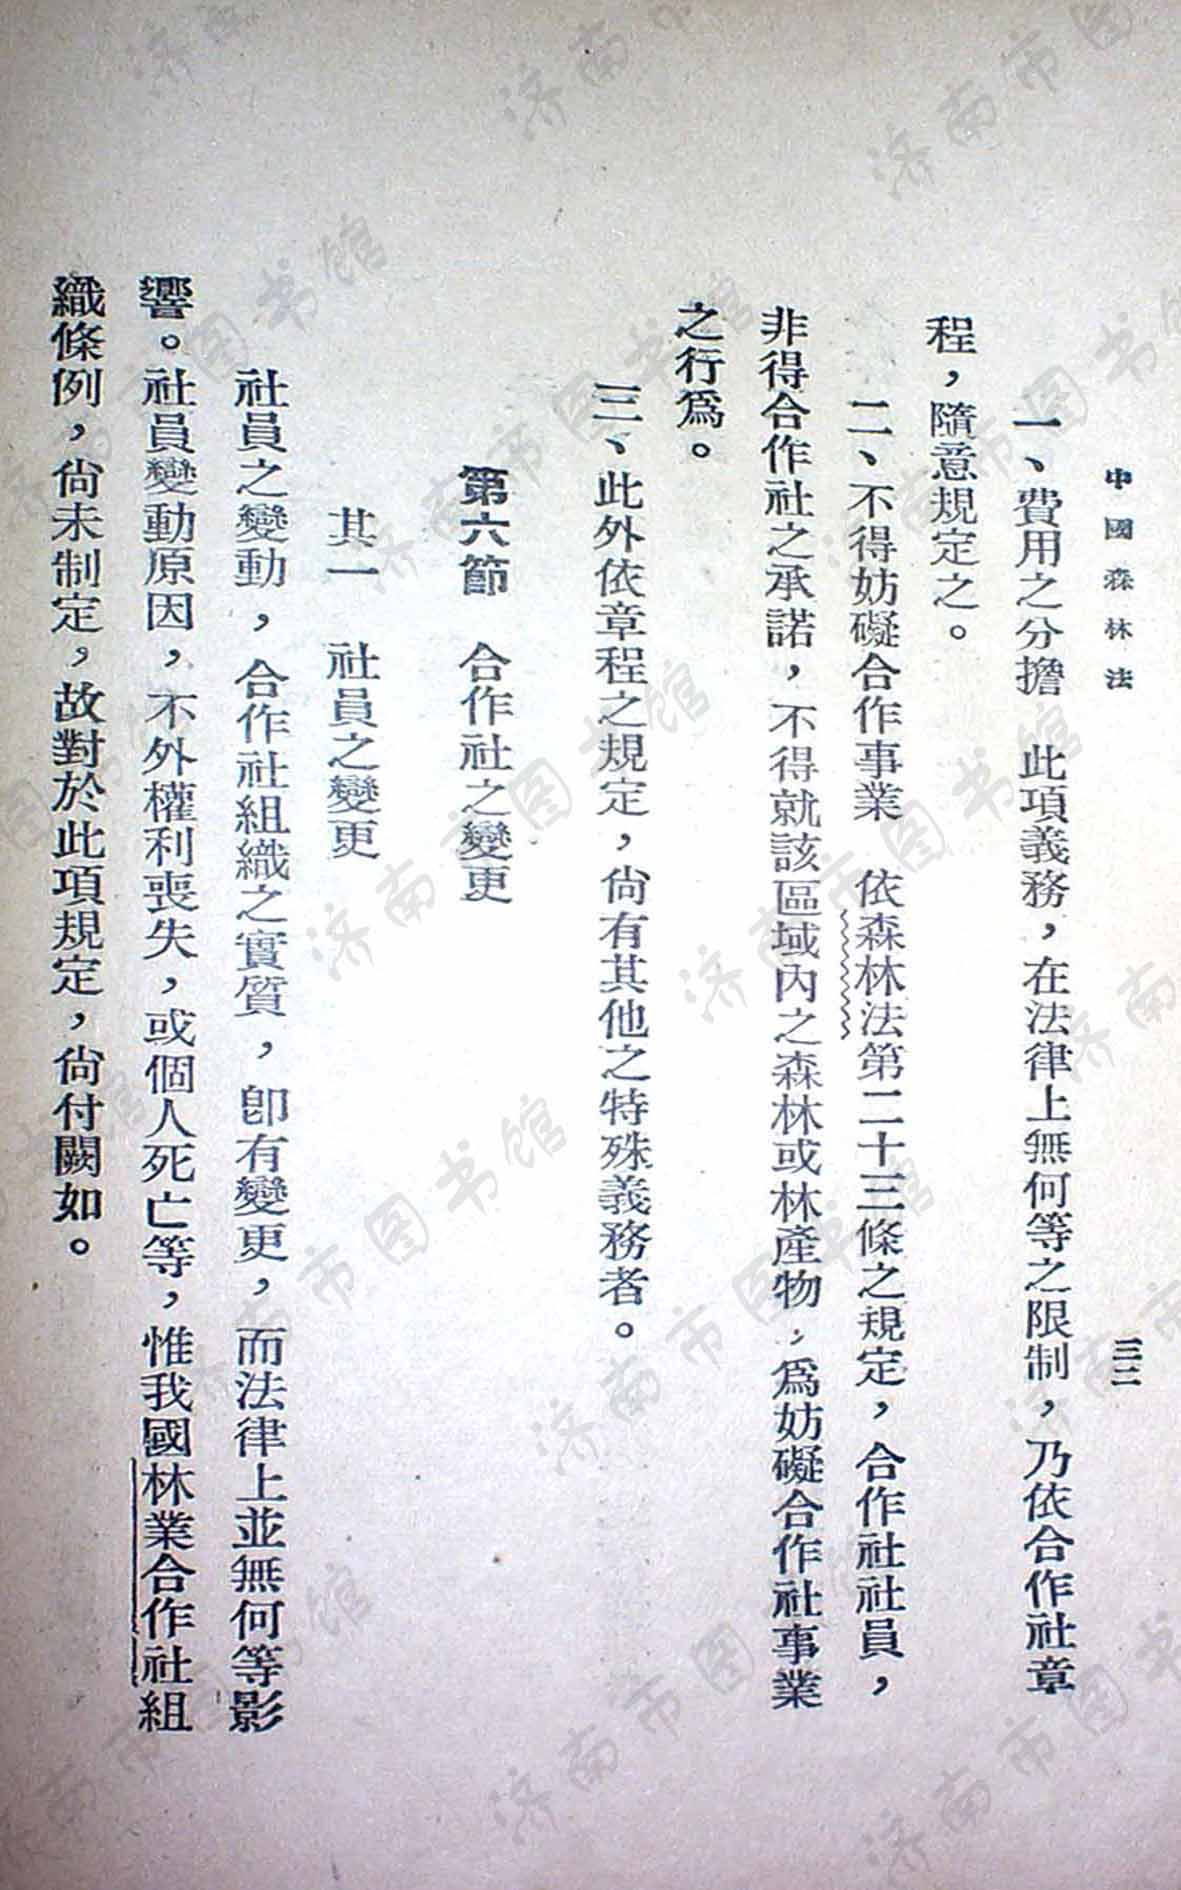 中國森林法
三二
一、費用之分擔　此項義務，在法律上無何等之限制，乃依合作社章
程，隨意規定之。
二、不得妨礙合作事業　依森林法第二十三條之規定，合作社社員，
非得合作社之承諾，不得就該區域內之森林或林產物，爲妨礙合作社事業
之行爲。
三、此外依章程之規定，尙有其他之特殊義務者。
第六節　合作社之變更
其一　社員之變更
社員之變動，合作社組織之實質，卽有變更，而法律上並無何等影
響。社員變動原因，不外權利喪失，或個人死亡等，惟我國林業合作社組
織條例，尙未制定，故對於此項規定，尙付闕如。
济南市图书馆